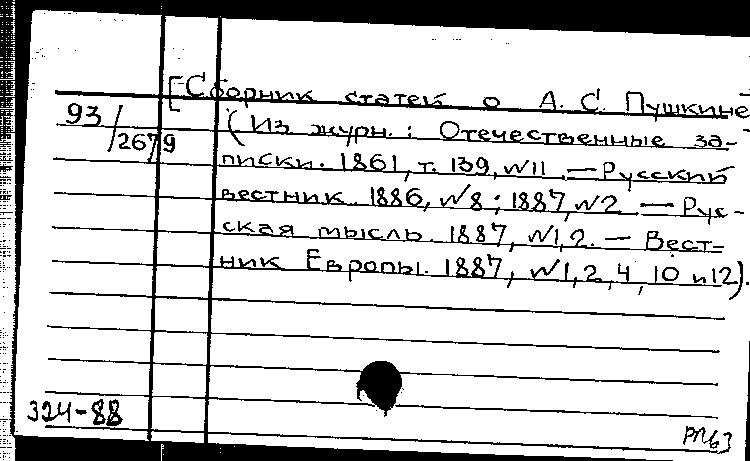 [Сборник статей о А. С. Пушкине
93/2679
(Из журн.: Отечественные за-
писки. 1861, т. 139, №11. — Русский
вестник. 1886, №8; 1887, №2. — Рус-
ская мысль. 1887, №1, 2. — Вест-
ник Европы. 1887, №1, 2, 4, 10 и 12).
324-88